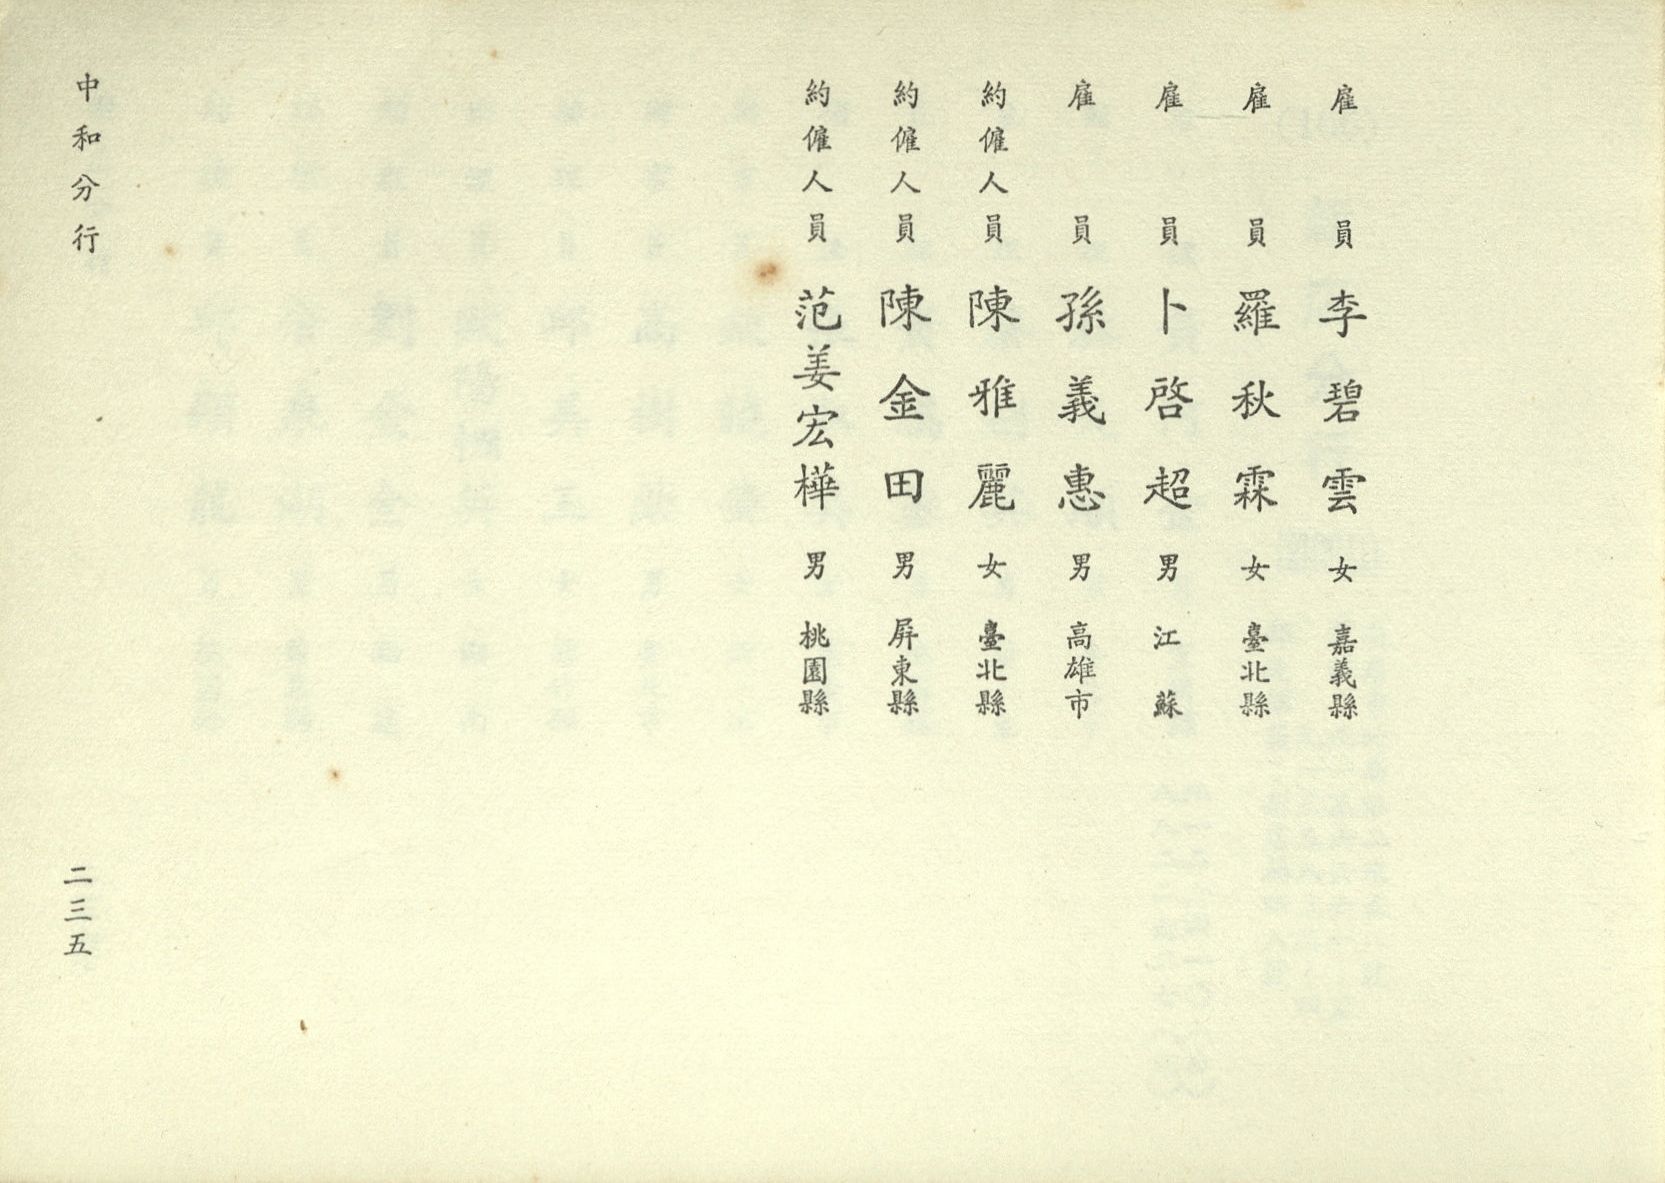 雇員 李碧雲 女 嘉義縣
雇員 羅秋霖 女 臺北縣
雇員 卜啓超 男 江蘇
雇員 孫義惠 男 高雄市
約僱人員 陳雅麗 女 臺北縣
約僱人員 陳金田 男 屏東縣
約僱人員 范姜宏樺 男 桃園縣
中和分行
二三五